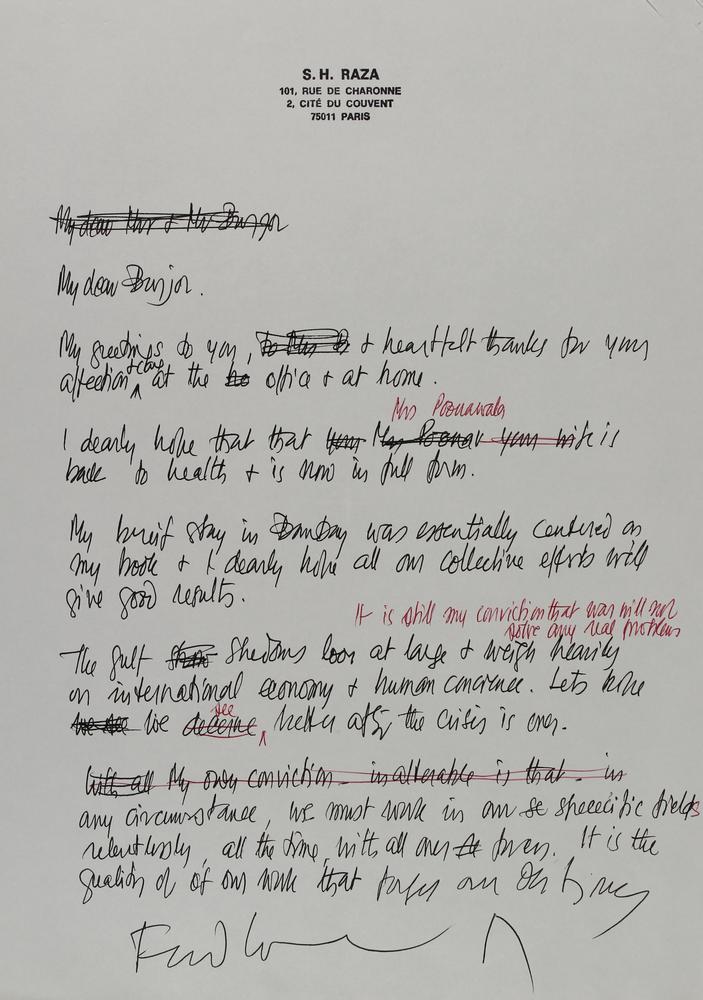 S. H. RAZA
101, RUE DE CHARONNE
2, CITÉ DU COUVENT
75011 PARIS
My dear Mrs & Mr Burjor
My dear Burjor.
My greetings to you, to Mrs B & heartfelt thanks for your
affection & care at the office & at home.
Mrs Poonawala
I dearly hope that that your Mrs Poonawa your wife is
back to health & is now in full form.
My breif stay in Bombay was essentially centered on
my book & I dearly hope all our collective efforts will
give good results.
It is still my conviction that war will not
solve any real problem
The gulf shadows loom at large & weigh heavily
on international economy & human concience. Lets hope
see
we better after the crisis is over.
With all My own conviction inalterable is that - in
any circumstance, we must work in our se speecific fields
relentlessly, all the time, with all ones forces. It is the
quality of of our work that forges our destiney